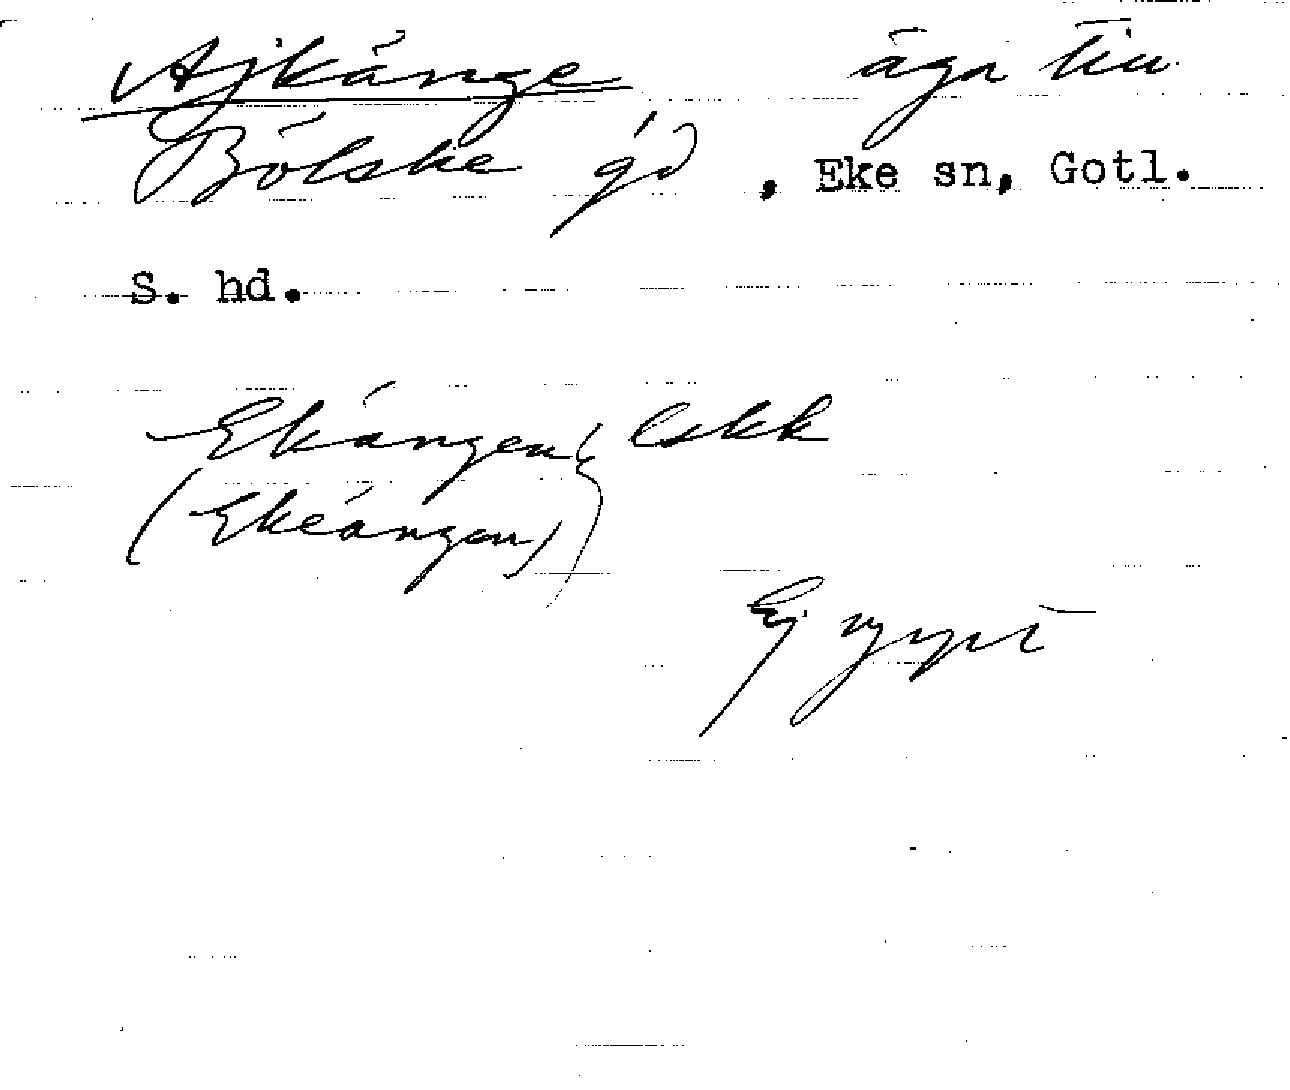 Ajkänge äga till
Bölske gd, Eke sn, Gotl.
S. hd.
Ekängen, lskk
(Ekeängen)
Ej uppt